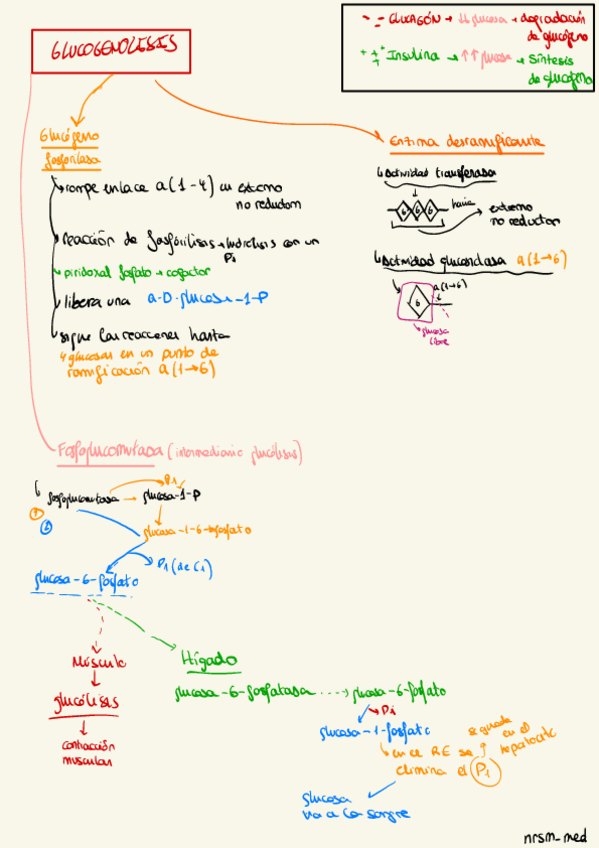 GLUCOGENOLISIS
- - - GLUCAGÓN → ↓↓ glucosa → degradación
de glucógeno
+ + + Insulina → ↑↑ glucosa → síntesis
de glucógeno
Glucógeno
fosforilasa
rompe enlace α(1-4) en extremo
no reductom
reacción de fosfórilisis → hidrólisis con un
Pi
piridoxal fosfato → cofactor
libera una α-D-glucosa-1-P
sigue las reacciones hasta
4 glucosas en un punto de
ramificación α(1→6)
Enzima desramificante
↳ Actividad transferasa
6 6 6 hacia extremo
no reductor
↳ Actividad glucosidasa α(1→6)
6 α(1→6)
↳ glucosa
libre
Fosfoglucomutasa (intermediario glucólisis)
P1
↳ fosfoglucomutasa → glucosa-1-P
1
2
glucosa-1-6-fosfato
P1 (de C1)
glucosa-6-fosfato
Músculo
glucólisis
contracción
muscular
Hígado
glucosa-6-fosfatasa ----> glucosa-6-fosfato
Pi
glucosa-1-fosfato
en el RE se
elimina el P1
en el
hepatocito
glucosa
va a la sangre
nrsm_med